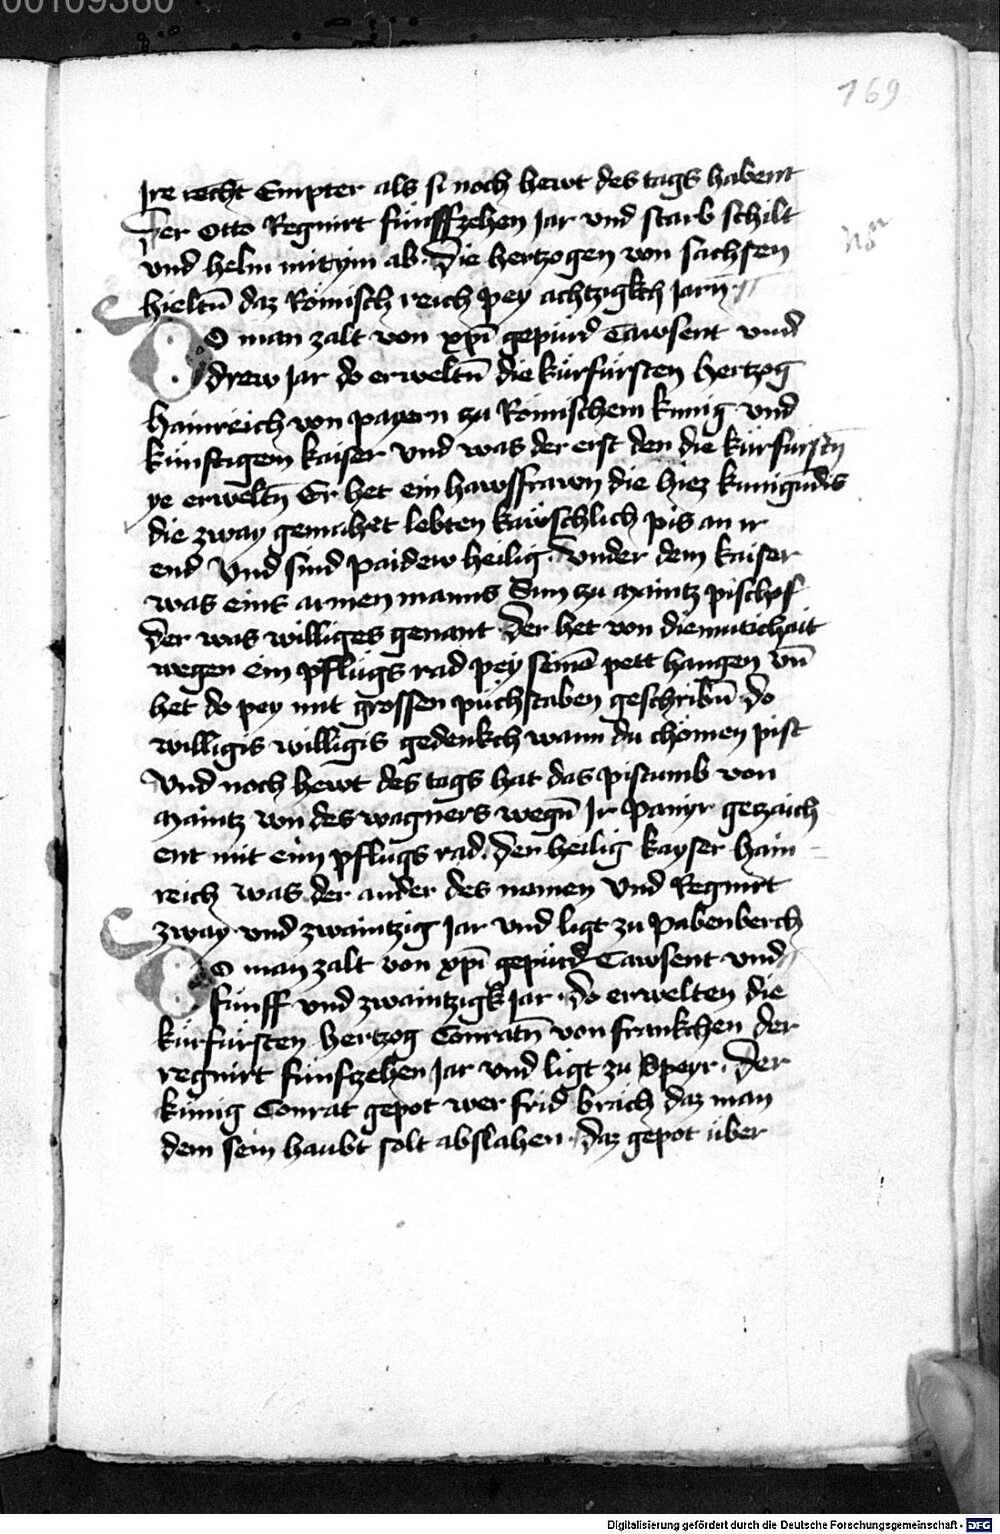 00109360
169
Ire recht Empter als si noch hewt des tags habent
Der Otto Regnirt fünffzehen Jar vnd starb schilt
vnd helm mit ym ab Die hertzogen von sachsen
hieltn̄ daz Römisch reich pey achtzigkch Jarn
DO man zalt von xpī gepurd Tawsent vnd
drew Jar do erweltn̄ die kürfürsten Hertzog
Hainreich von payern zu Römischem kunig vnd
künftigem kaiser Vnd was der erst den die kürfürstn̄
ye erweltn̄ Er het ein hawsfrawn die hiez kunigūdis
die zway gemahet lebten kawschlich pis an ir
end Vnd sind paidew heilig. Vnder dem kaiser
was eins armen manns Sun zu maintz pischof
der was williges genant Der het von diemutichait
wegen ein pflugs rad pey seinē pett hangen vn̄
het do pey mit grossen puchstaben geschribn̄ do
willigis willigis gedenkch wann du chömen pist
Vnd noch hewt des tags hat das pistumb von
maintz von des wagners wegn̄ Ir panyr getzaich
ent mit eim pflugs rad. Der heilig kayser hain=
reich was der ander des namen Vnd Regnirt
zway vnd zwaintzig Jar vnd ligt zu Pabenberch
DO man zalt von xpī gepurd Tawsent vnd
fünff vnd zwaintzigk Jar. do erwelten die
kürfürsten hertzog Conratn̄ von frankchen der
regnirt fünftzehen Jar vnd ligt zu Speyr. Der
künig Conrat gepot wer frid bräch daz man
dem sein haubt solt abslahen. daz gepot über
Digitalisierung gefördert durch die Deutsche Forschungsgemeinschaft - DFG